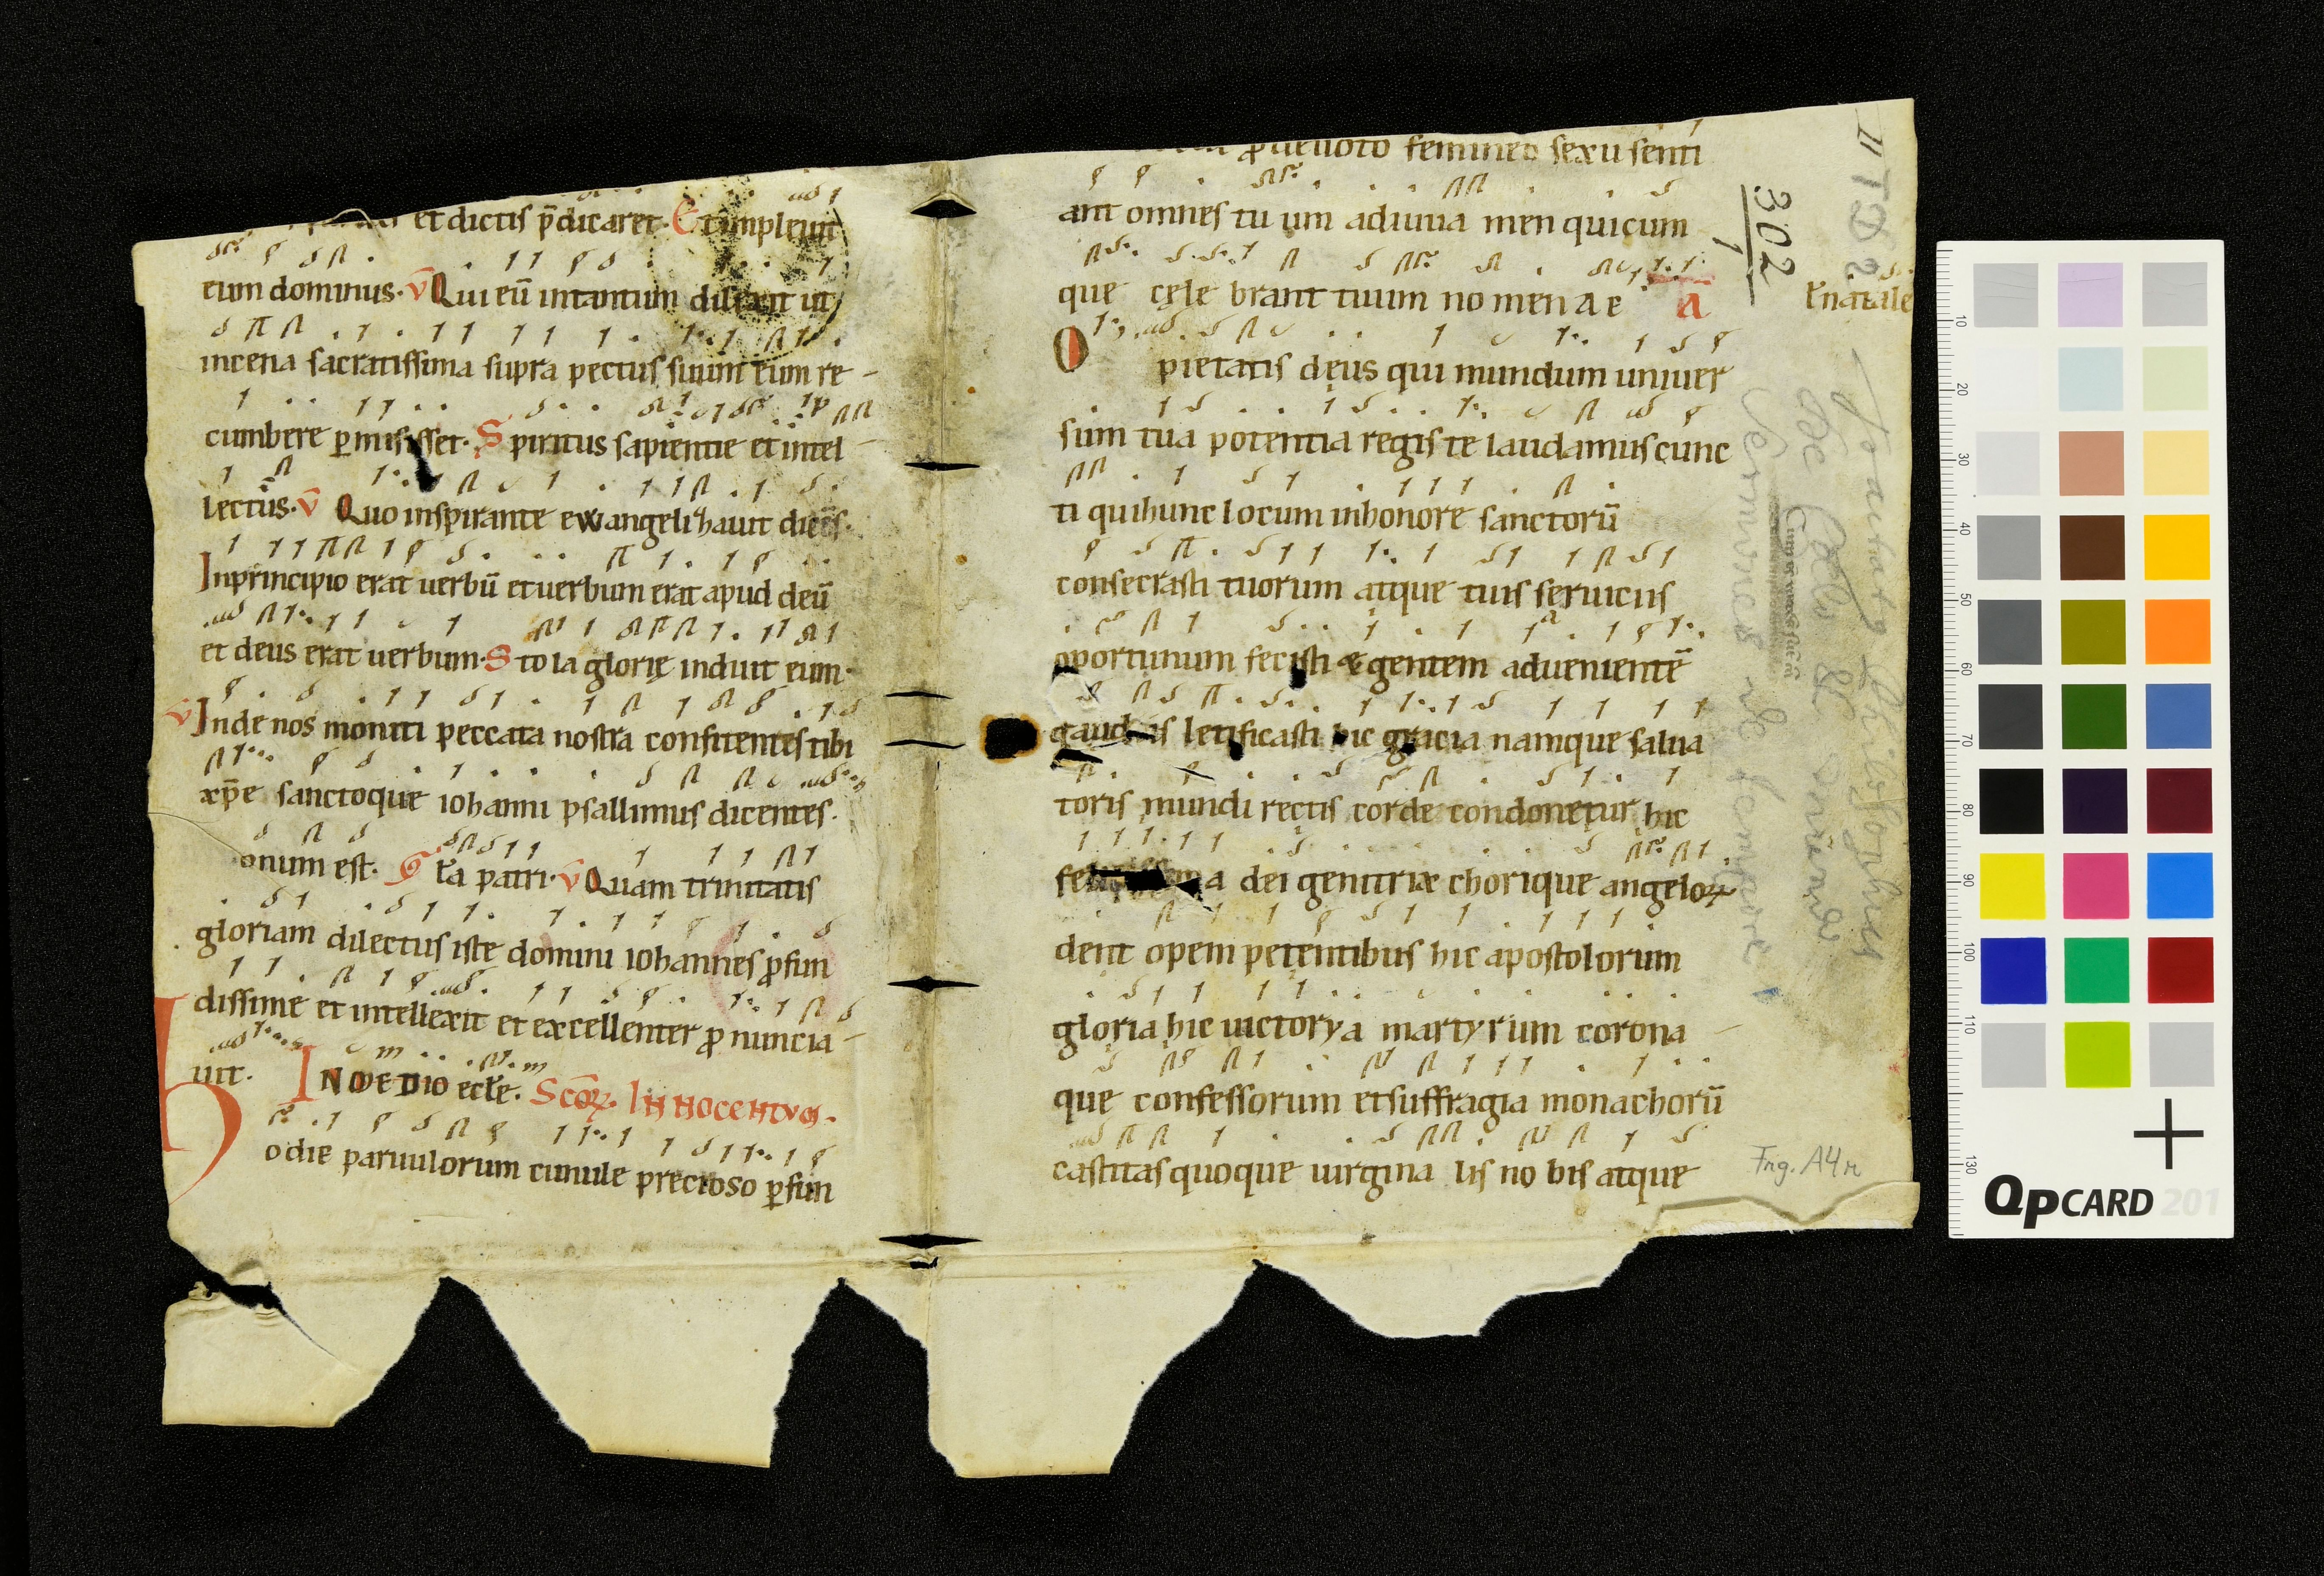 et dictis p̄dicaret. Et impleuit
eum dominus. v̄ Qui eū intantum dilexit ut
incena sacratissima supra pectus suum eum re-
cumbere p̱misisset. Spiritus sapientie et intel-
lectus. v̄ Quo inspirante ewangelizauit dicēs.
Inprincipio erat uerbū et uerbum erat apud deū
et deus erat uerbum. Stola glorię induit eum.
v̄ Inde nos moniti peccata nostra confitentes tibi
xp̄e sanctoque iohanni psallimus dicentes.
onum est. Gła patri. v̄ Quam trinitatis
gloriam dilectus iste domini iohannes ꝓfun
dissime et intellexit et excellenter ꝓnuncia-
uit. IN MEDIO eccłe. Scōꝝ. INNOCENTVM.
Hodie paruulorum cumule precioso p̱fun
ꝓ deuoto femineo sexu senti
ant omnes tuum adiuuamen quicum
que cęlebrant tuum nomen a e A
r̄ natale
O pietatis dęus qui mundum uniuer
sum tua potentia regis te laudamus cunc
ti qui hunc locum inhonore sanctorū
consecrasti tuorum atque tuis sęruiciis
oportunum fecisti &gentem aduenientē
gaudiis lętificasti hic gracia namque salua
toris mundi rectis corde condonętur hic
felicissima dei genitrix chorique angeloꝝ
dent opem petentibus hic apostolorum
gloria hic uictorya martyrum corona-
que confessorum et suffragia monachorū
castitas quoque uirginalis nobis atque
302
1
Frg. A4r
QpCARD 201
10
20
30
40
50
60
70
80
90
100
110
130